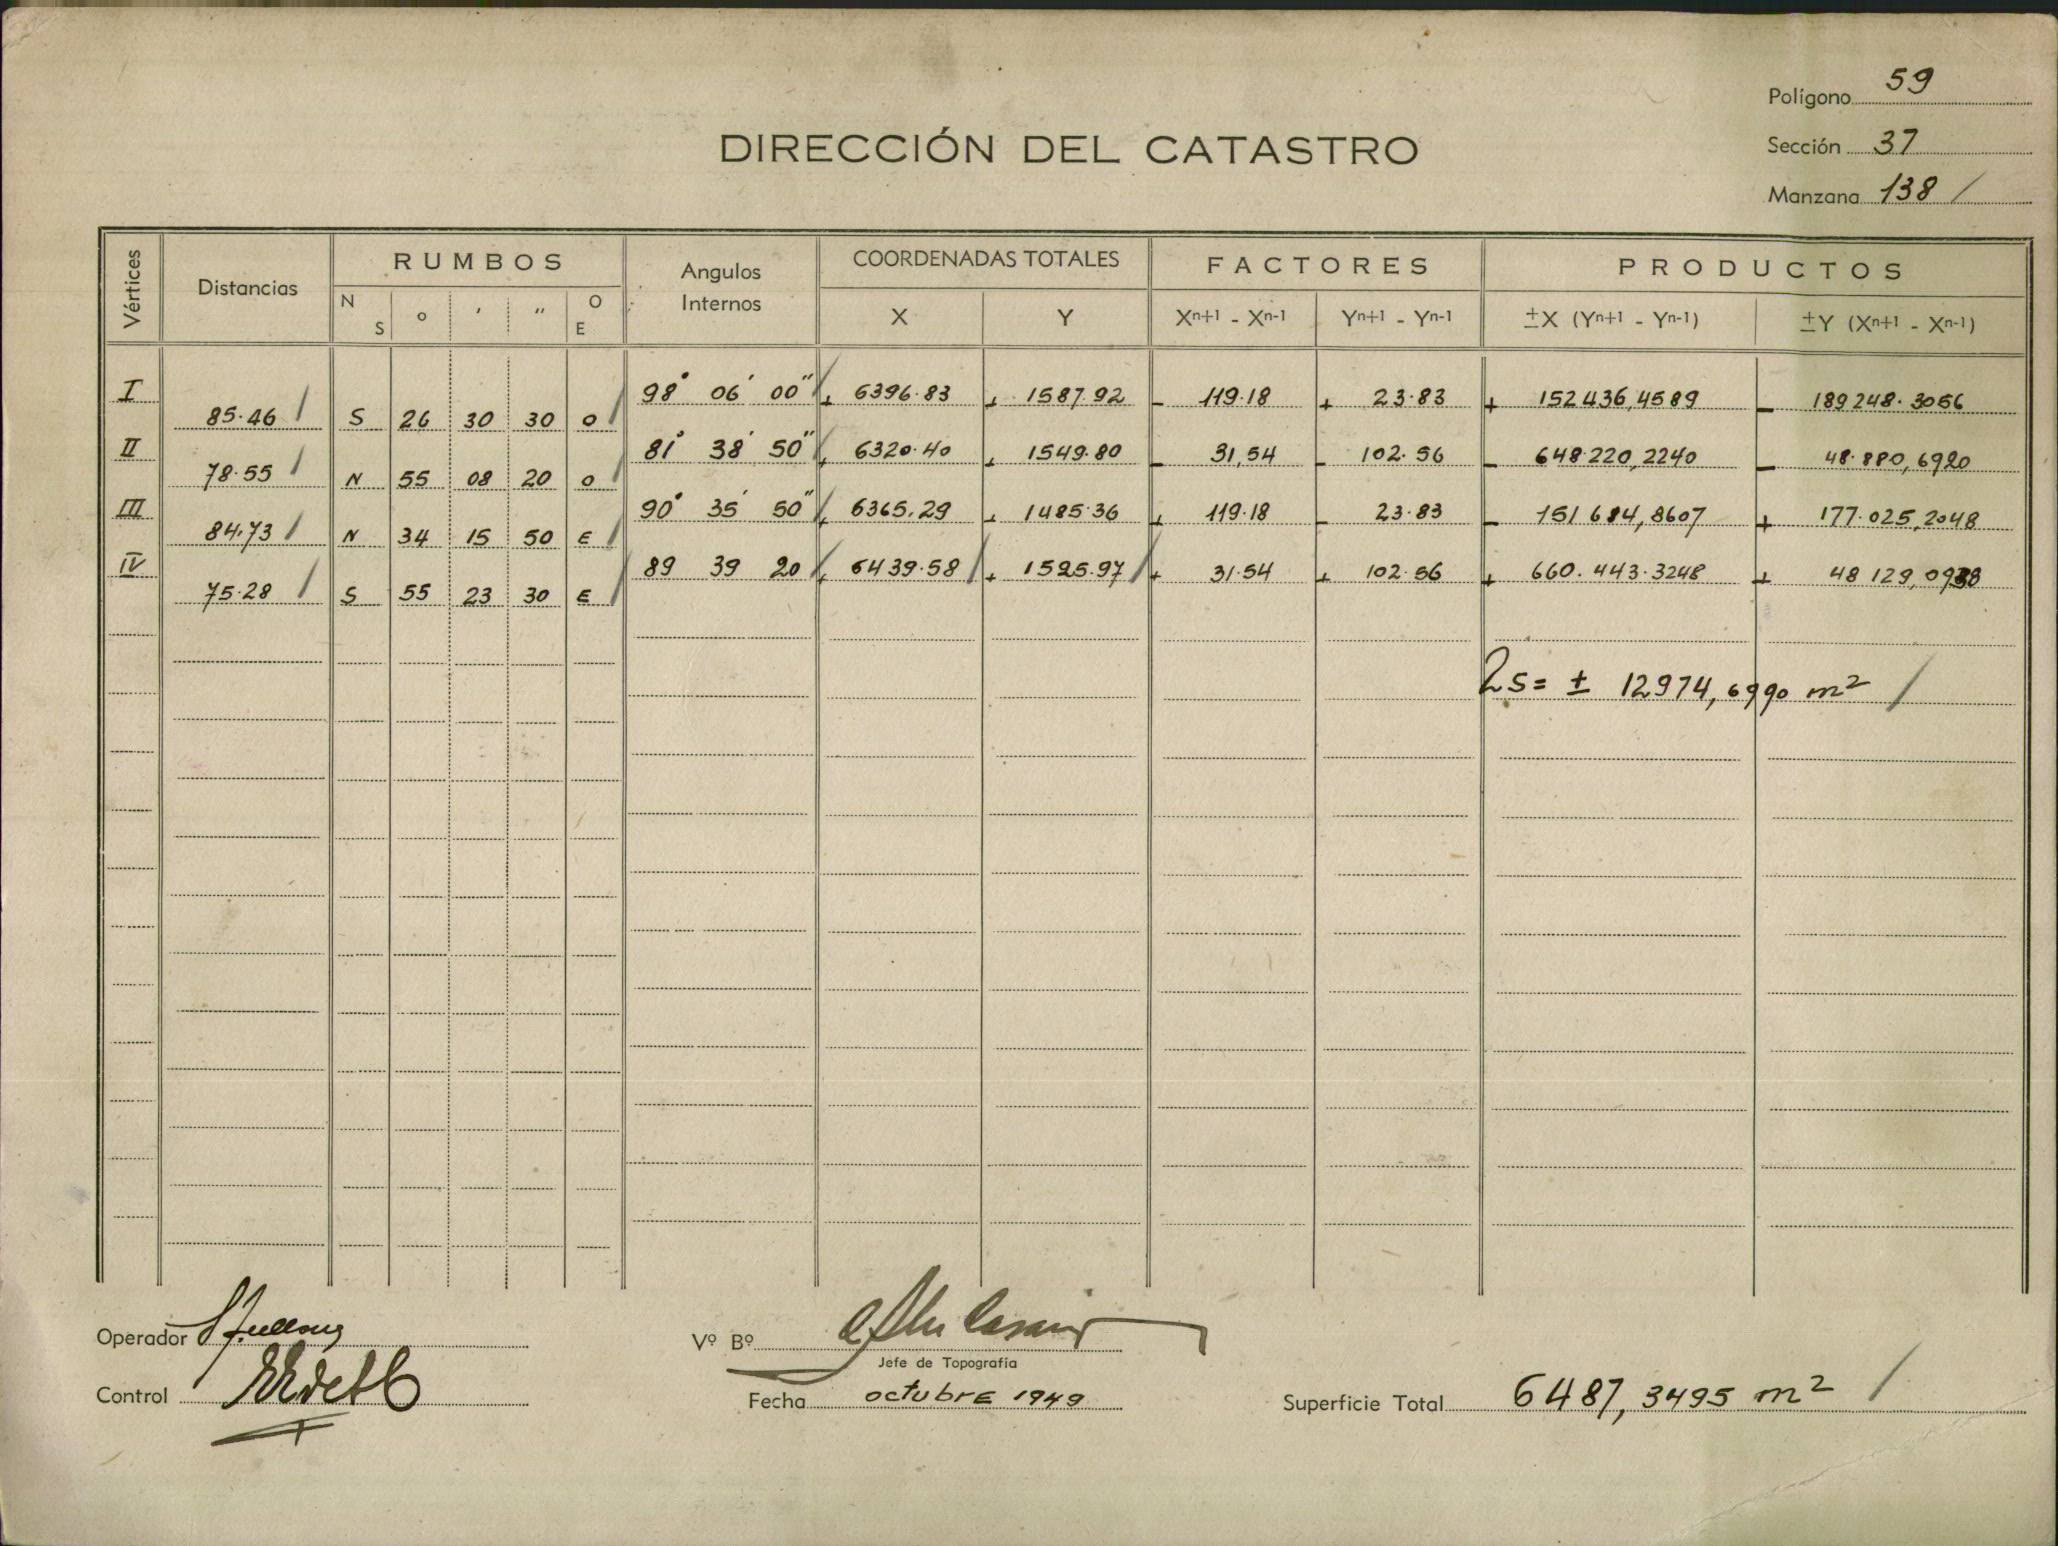 Polígono 59
DIRECCIÓN DEL CATASTRO
Sección 37
Manzana 138 /
Vértices
Distancias
RUMBOS
N S ° ' " O E
Angulos Internos
COORDENADAS TOTALES
X Y
FACTORES
Xn+1 - Xn-1 Yn+1 - Yn-1
PRODUCTOS
±X (Yn+1 - Yn-1) ±Y (Xn+1 - Xn-1)
I 98° 06' 00" + 6396.83 + 1587.92 - 119.18 + 23.83 + 152436,4589 - 189248.3056
85.46 S 26 30 30 O
II 81° 38' 50" + 6320.40 + 1549.80 - 31,54 - 102.56 - 648.220,2240 - 48.880,6920
78.55 N 55 08 20 O
III 90° 35' 50" + 6365.29 + 1485.36 + 119.18 - 23.83 - 151684,8607 + 177.025,2048
84.73 N 34 15 50 E
IV 89 39 20 + 6439.58 + 1525.97 + 31.54 + 102.56 + 660.443.3248 + 48129,0938
75.28 S 55 23 30 E
2S = ± 12974,6990 m²
Operador
Vº Bº
Jefe de Topografía
Control
Fecha octubre 1949
Superficie Total 6487,3495 m²